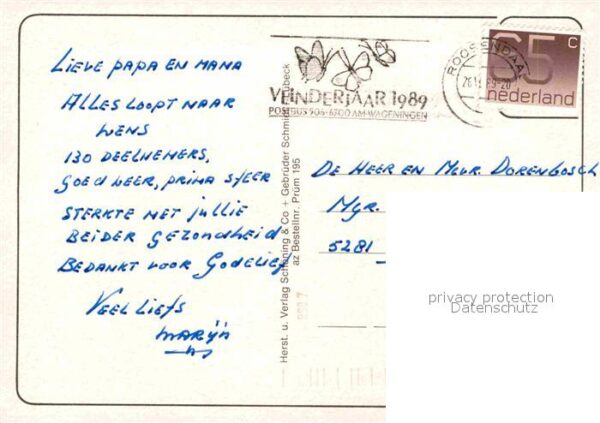 Lieve papa en mama
Alles loopt naar
wens
130 deelnemers,
goed weer, prima sfeer
Sterkte met jullie
beider gezondheid
Bedankt voor Godelief
Veel liefs
Marijn
VLINDERJAAR 1989
POSTBUS 506-6700 AM-WAGENINGEN
ROOSENDAAL
65 c
nederland
Herst. u. Verlag Schöning & Co + Gebrüder Schmidt,
az Bestellnr. Prüm 195
De Heer en Mevr. Dorenbosch
Mgr.
5281
privacy protection
Datenschutz